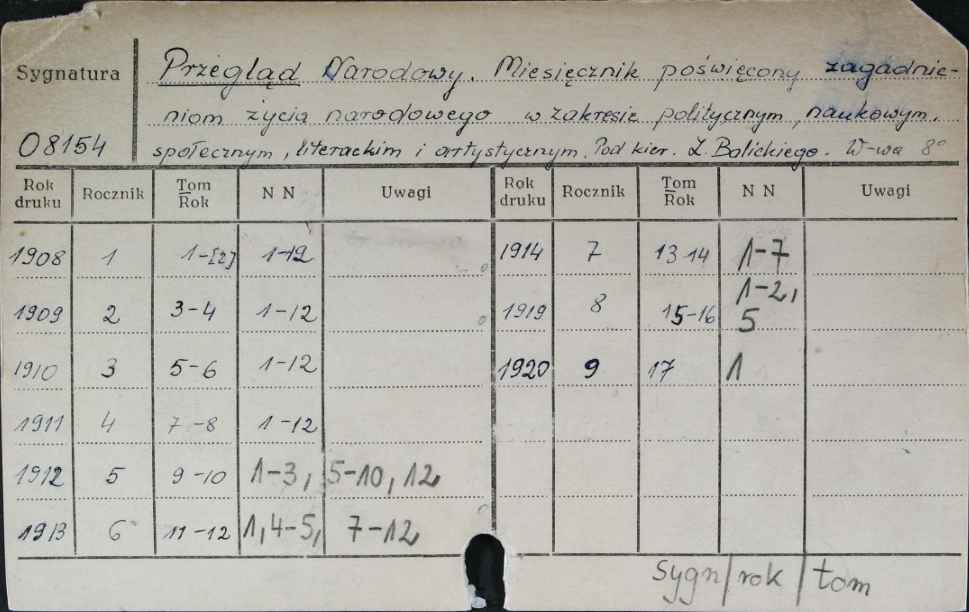 Sygnatura
08154
Przegląd Narodowy. Miesięcznik poświęcony zagadnie-
niom życia narodowego w zakresie politycznym, naukowym,
społecznym, literackim i artystycznym. Pod kier. Z. Balickiego. W-wa 8°
Rok druku Rocznik Tom Rok N N Uwagi Rok druku Rocznik Tom Rok N N Uwagi
1908 1 1-[2] 1-12 1914 7 13-14 1-7
1909 2 3-4 1-12 1919 8 15-16 1-2, 5
1910 3 5-6 1-12 1920 9 17 1
1911 4 7-8 1-12
1912 5 9-10 1-3, 5-10, 12
1913 6 11-12 1, 4-5, 7-12
Sygn/rok/tom